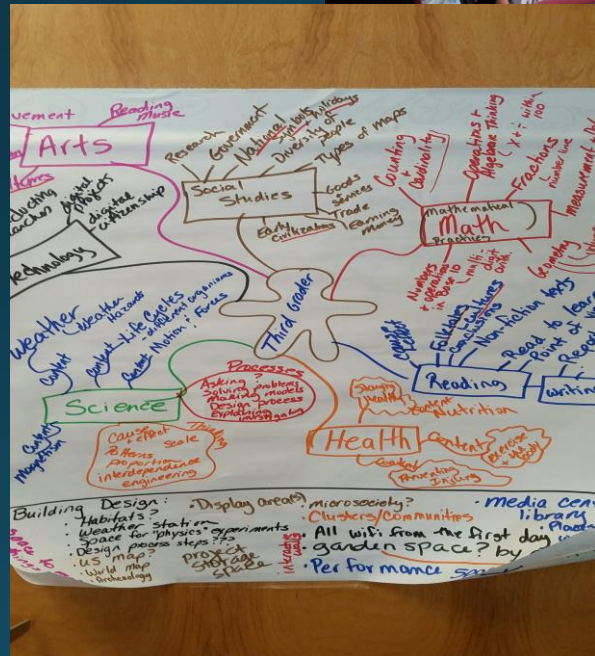 vement
Reading
Music
Arts
digital
projects
digital
citizenship
Technology
Research
Government
National
Symbols
Holidays
Diversity of
people
Types of maps
Social
Studies
Goods
services
Trade
Earning
money
Early
Civilizations
Counting
+
Cardinality
Operations +
Algebraic Thinking
within
100
Fractions
number line
measurement +
Mathematical
Math
Practices
Geometry
Numbers
+ operations
in Base 10
multi-
digit
Third Grader
weather
Weather
Hazards
Content
Life Cycles
- different organisms
Motion + Forces
Science
Content
Magnetism
Processes
Asking ?
Solving problems
Making models
Design process
Explaining
investigating
Thinking
Cause
+ effect
Scale
Patterns
proportion
interdependence
engineering
cause
effect
Folktales
cultures
conclusions
Non-fiction texts
Read to learn
Point of
Reading
writing
Staying
Healthy
Content
Nutrition
Health
Content
Exercise
Content
Preventing
Injury
Building Design:
• Habitats?
• Weather Station
• Space for "physics" experiments
• Design process steps???
• US map?
• World map
• Archeology
• Display area(s)
project
storage
space
• microsociety?
• Clusters/Communities
• All wifi from the first day
• garden space? by
• Performance
• media cen
library